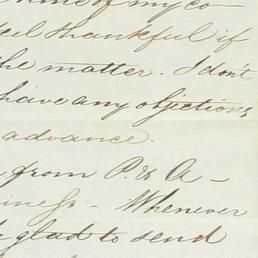 of my co
feel thankful if
the matter. I don't
have any objections
advance.
from P. & A –
iness – Whenever
glad to send